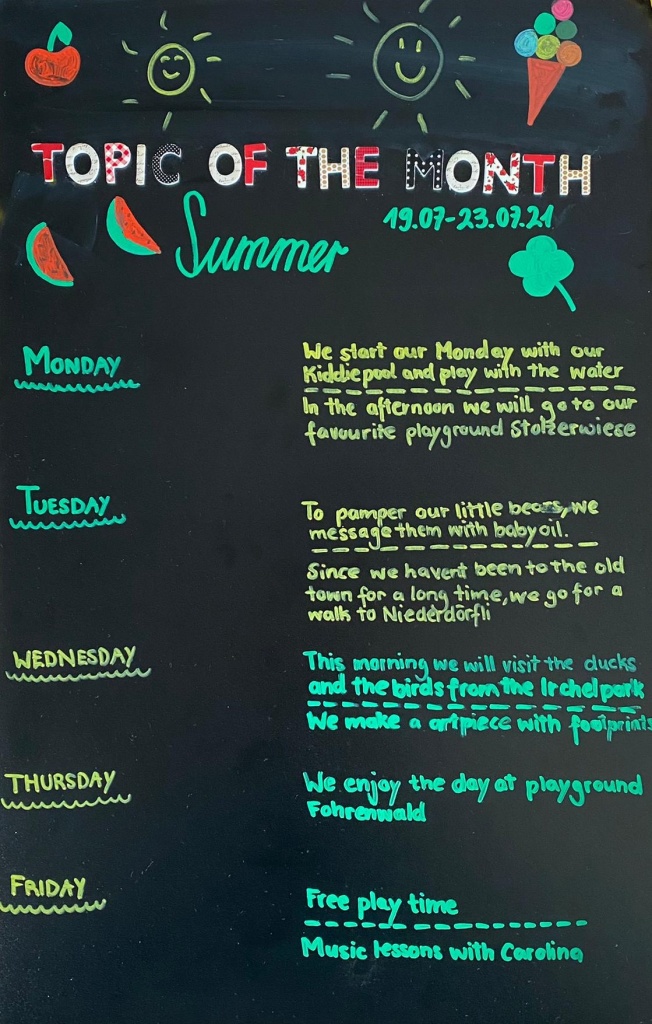 TOPIC OF THE MONTH
19.07-23.07.21
Summer
MONDAY
We start our Monday with our
Kiddiepool and play with the water
In the afternoon we will go to our
favourite playground Stolzerwiese
TUESDAY
To pamper our little bears, we
message them with baby oil.
Since we havent been to the old
town for a long time, we go for a
walk to Niederdörfli
WEDNESDAY
This morning we will visit the ducks
and the birds from the Irchelpark
We make a artpiece with footprints
THURSDAY
We enjoy the day at playground
Fohrenwald
FRIDAY
Free play time
Music lessons with Carolina